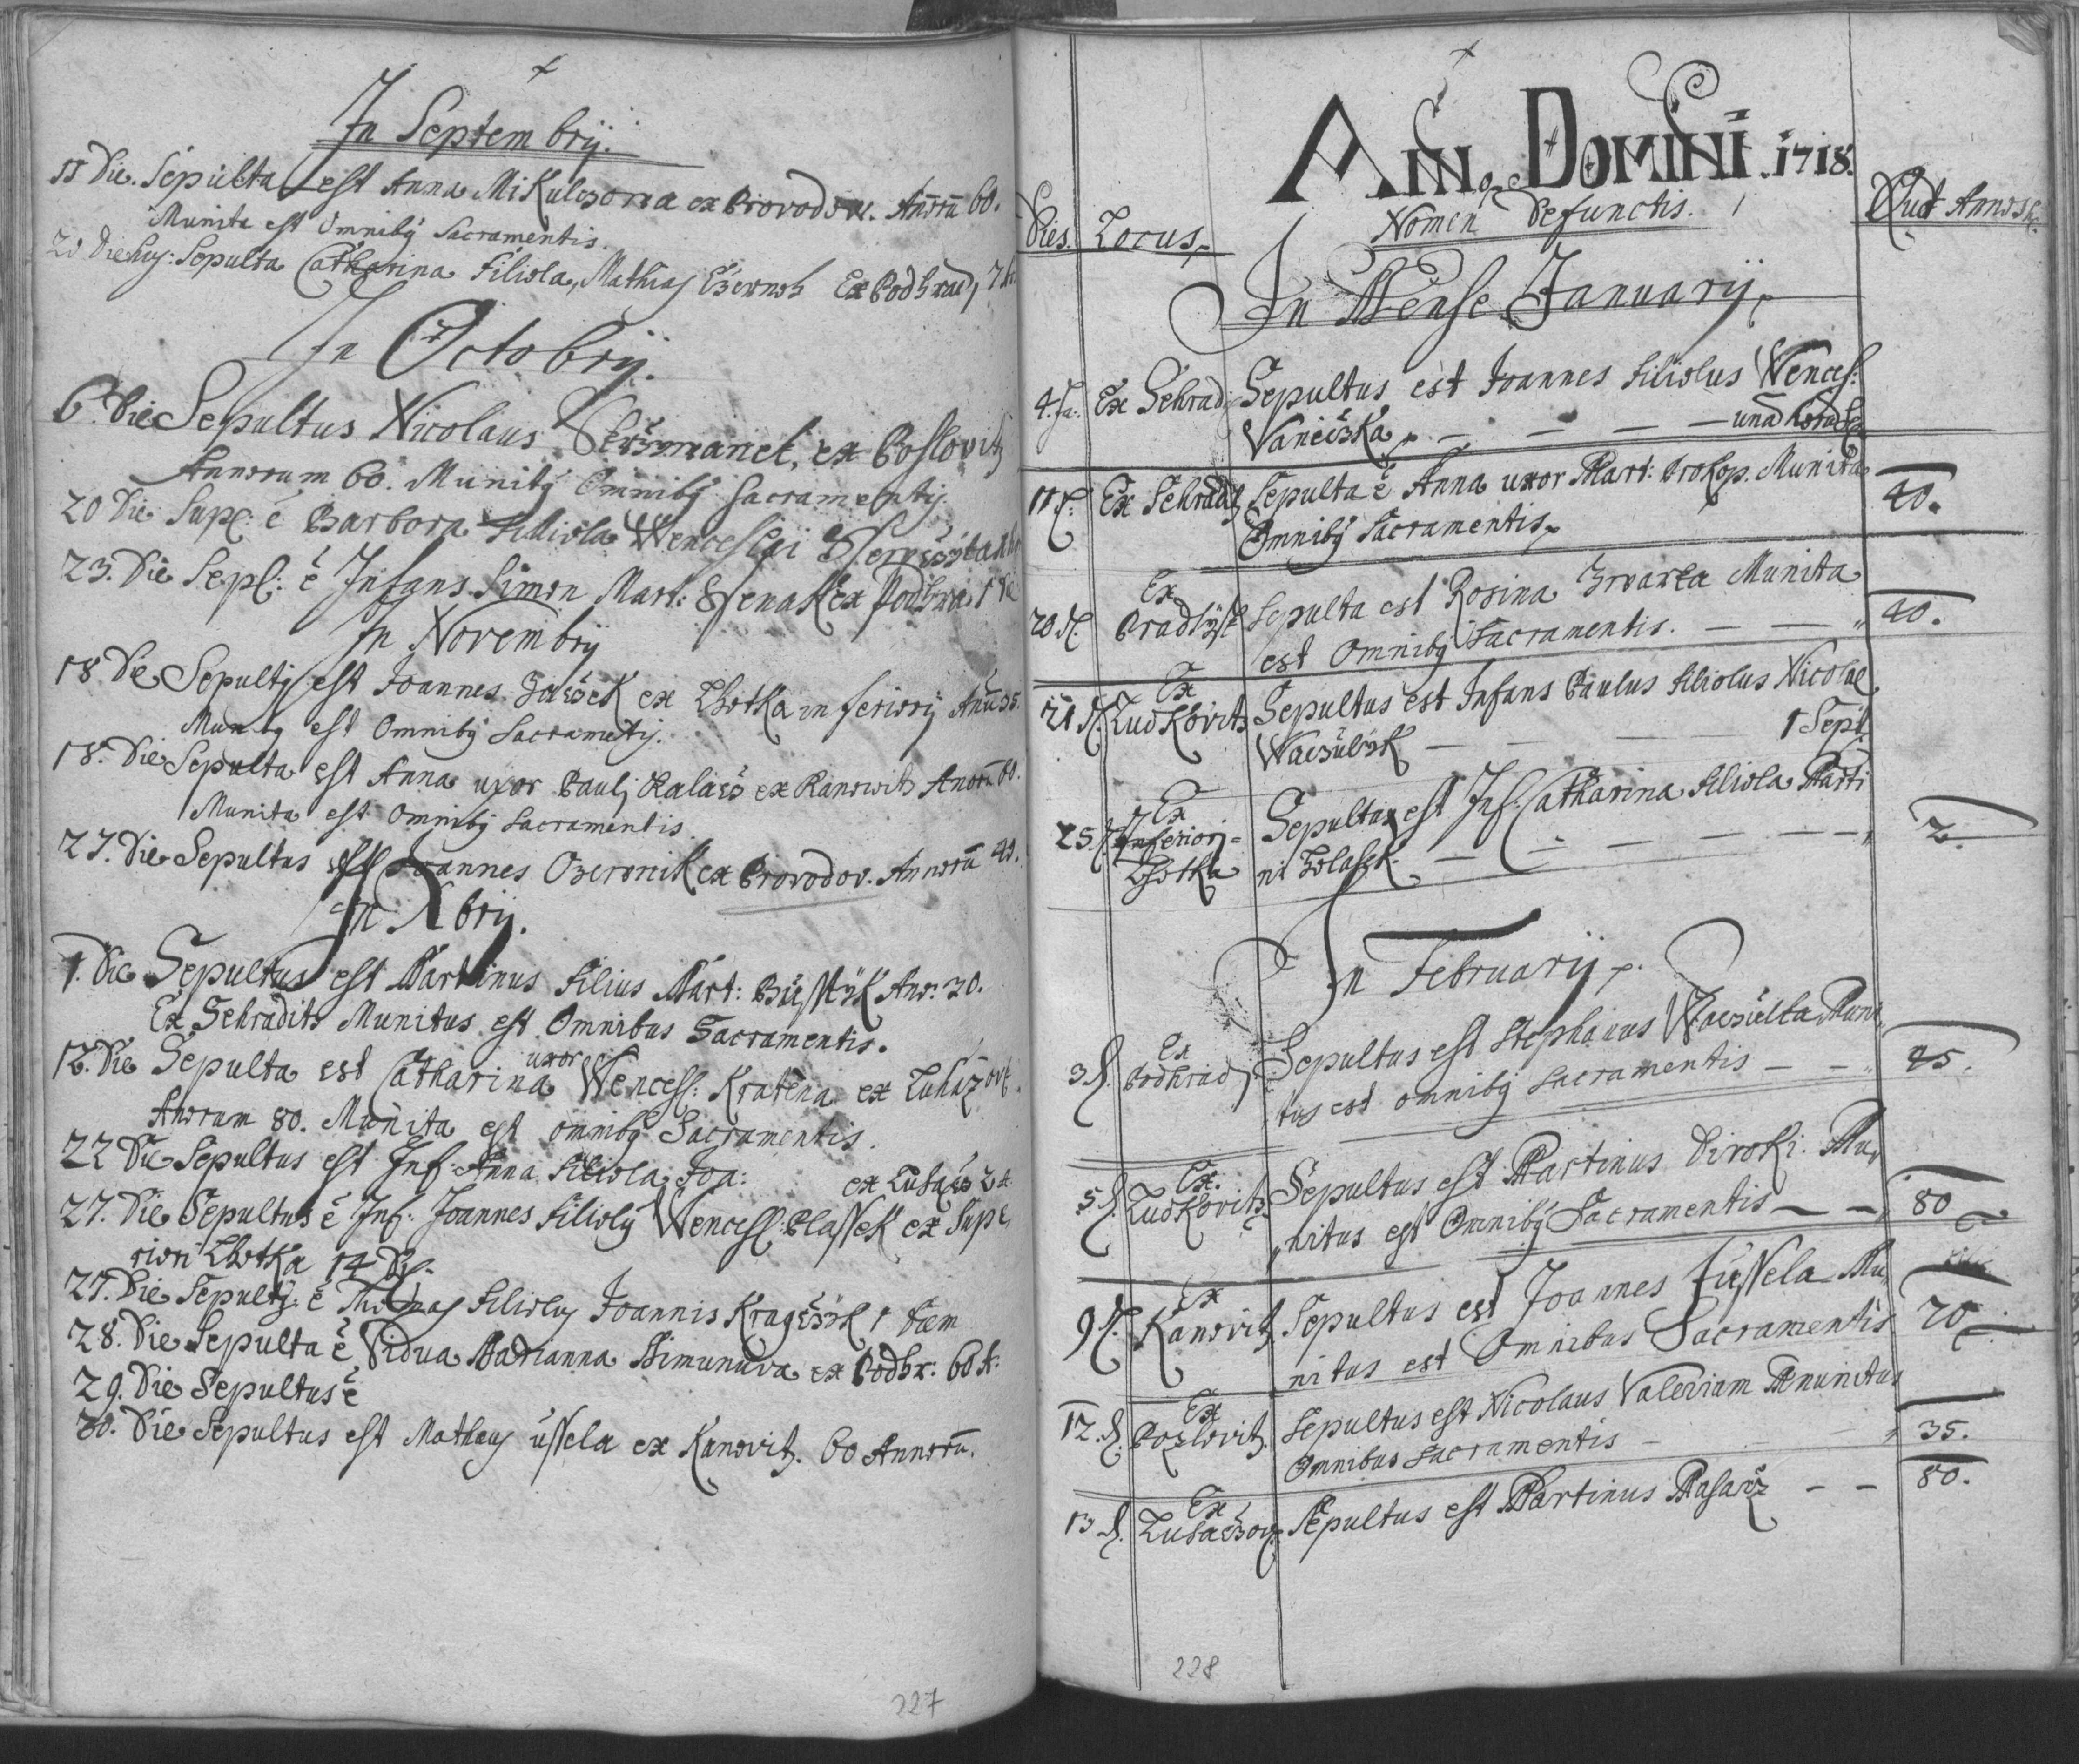 In Septembrij.
11 Die. Sepulta est Anna Mikulczowa ex Provodow. Anorũ 60.
Munita est Omnibq Sacramentis.
20 Die huj: Sepulta Catharina Filiola, Mathiaj Ex Podhrad,
In Octobrij.
6. Die Sepultus Nicolaus ex Poslovitz
Annorum 60. Munitq Omnibq Sacramentij.
20 Die Supl: ē Barbora Filliola Wenceslai
23. Die Sepl: ē Infans Simon Mart: ex Podhra:
In Novembrij
18 De Sepultq est Joannes ex Lhotka inferiorij Anũ 35.
Munitq est Omnibq Sacrametij.
18. Die Sepulta est Anna uxor Paulj Kalacz ex Kanowitz Anorũ 60.
Munita est Omnibq Sacramentis
27. Die Sepultus est Joannes Ozeronik ex Provodov. Annorũ 40.
In Xbrij.
1. Die Sepultus est Martinus Filius Mart: Anō. 20.
Ex Sehradits Munitus est Omnibus Sacramentis.
12. Die Sepulta est Catharina uxor Wencesl: Kratena ex Luhazovi.
Anorum 80. Munita est omnibq Sacramentis.
22 Die Sepultus est Inf: Anna Filiola Joa: ex
27. Die Sepultus ē Inf: Joannes Filiolq Wencesl: Blassek ex Supe
riori Lhotka 14 D.
27. Die Sepultq. ē Thomas Filioluj Joannis 1 Diem
28. Die Sepulta ē Vidua Marianna Simunuva ex Podhr: 60 A:
29. Die Sepultus ē
30. Die Sepultus est Matheuj ussela ex Kanovitz. 60 Annorũ.
227
Anno Domini. 1718.
Dies. Locus. Nomen Defunctis. Quot Annor
In Mense Januarij
4. Ja. Ex Sehrad Sepultus est Joannes Filiolus Wencesl:
Vanieczka — — — — una
11 Ex Sehradi Sepulta ē Anna uxor Mart: Prokop. Munita 40.
Omnibq Sacramentis
20 Ex Pradlisk Sepulta est Rosina Munita 40.
est Omnibq Sacramentis. — —
21 Ex Ludkovits Sepultus est Infans Paulus Filiolus Nicolae
Waczulik — — — 1 Sept.
25. Ex Inferiori- Lhotka Sepulta est Inf: Catharina Filiola Marti 2.
ni Wlasek — — — — —
In Februarij.
3. Ex Podhrad Sepultus est Stephanus Waczulka Muni 45.
tus est omnibq Sacramentis — —
5. Ex Ludkovitz Sepultus est Martinus Diroki. Mu 80
nitus est Omnibq Sacramentis — —
9 Ex Kanovitz Sepultus est Joannes Fussela Mu 70
nitus est Omnibus Sacramentis
12. Ex Pozlovitz. Sepultus est Nicolaus Valerian Munitus
Omnibus Sacramentis — 35.
13 Ex Luhaczov. Sepultus est Martinus Masarz — — 80.
228